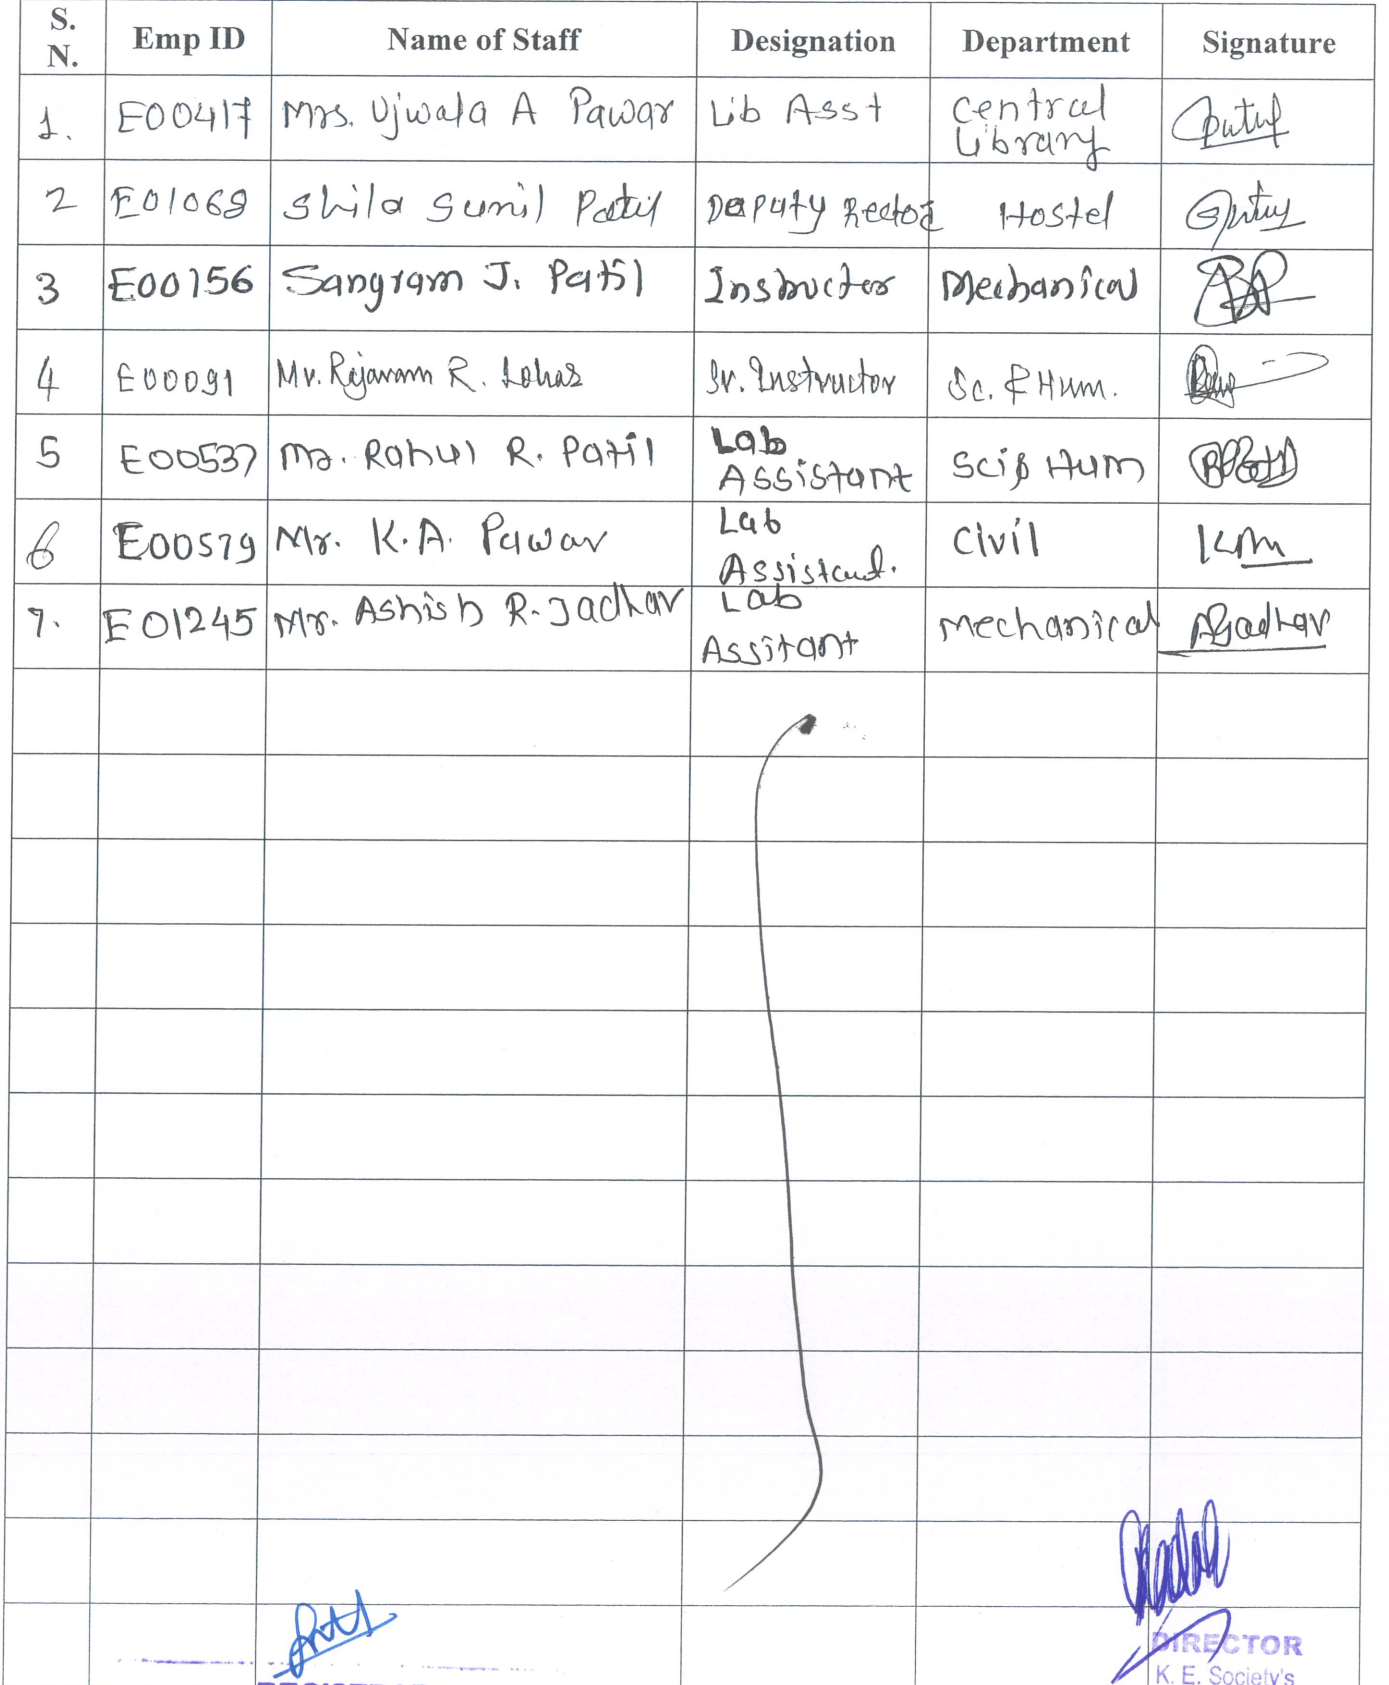 S. N. Emp ID Name of Staff Designation Department Signature
1. E00417 Mrs. Ujwala A Pawar Lib Asst Central Library
2 E01068 Shila Sunil Patil Deputy Rector Hostel
3 E00156 Sangram J. Patil Instructor Mechanical
4 E00091 Mr. Rajaram R. Lohar Sr. Instructor Sc. & Hum.
5 E00537 Mr. Rahul R. Patil Lab Assistant Sci & Hum
6 E00579 Mr. K.A. Pawar Lab Assistant. Civil
7. E01245 Mr. Ashish R. Jadhav Lab Assitant Mechanical AJadhav
DIRECTOR
K. E. Society's